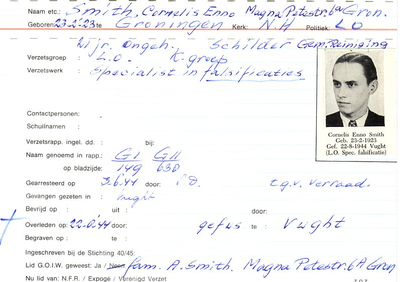 Naam etc.: Smith, Cornelis Enno Magna Petestr. 6a Gron.
Geboren: 23-2-'23 te Groningen Kerk: N.H Politiek: L O
Wijr. Ongeh. Schilder Gem. Reiniging
Verzetsgroep : L.O. K. groep
Verzetswerk : Specialist in falsificaties
Contactpersonen:
Schuilnamen :
Verzetsrapp. ingel. dd. : bij:
Naam genoemd in rapp.: G I G II
op bladzijde: 149 630
Gearresteerd op 3.6.44 door: S.D. t.g.v. verraad.
Gevangen gezeten in : Vught
Bevrijd op : uit : door:
Overleden op : 22.8.44 door: gefus. te : Vught
Begraven op : te :
Ingeschreven bij de Stichting 40/45:
Lid G.O.I.W. geweest: Ja / Neen fam. A. Smith. Magna Petestr. 6A Gron
Nu lid van: N.F.R. / Expogé / Verenigd Verzet
Cornelis Enno Smith
Geb. 23-2-1923
Gef. 22-8-1944 Vught
(L.O. Spec. falsificatie)